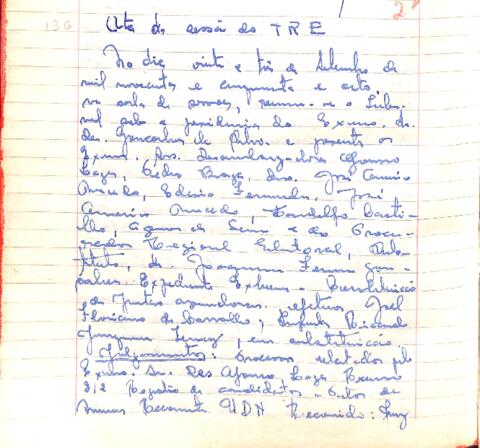 136
2
Ata da sessão do TRE
No dia vinte e três de Setembro de
mil novecentos e cinquenta e oito,
na sala de sessões, reuniu-se o Tribu-
nal sob a presidência do Exmo. Sr.
des. Gonçalves da Silva e presentes os
Exmos. Srs. Desembargadores Afonso
Lages, Pedro Braga, Drs. José
Macedo, Edésio Fernandes, José
Américo Macedo, Landulfo
e do Procu-
rador Regional Eleitoral,
tituto, dr. Joaquim Ferreira Gon-
çalves. Expediente Externo - Constituição
de Juntas apuradoras. efetivo Joel
Floriano de Carvalho; Suplente Ricardo
, em substituição.
Julgamentos: Processos relatados pelo
Exmo. Sr. Des Afonso Lages Recurso
312 Registro de candidatos - Autos de
Recorrente UDN Recorrido: Juiz